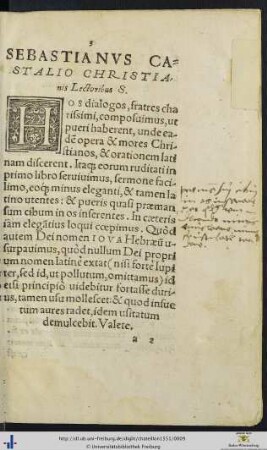 3
SEBASTIANVS CA-
STALIO CHRISTIA-
nis Lectoribus S.
HOs dialogos, fratres cha
rissimi, composuimus, ut
pueri haberent, unde ea-
dẽ opera & mores Chri-
stianos, & orationem lati
nam discerent. Itaq; eorum ruditati in
primo libro seruiuimus, sermone faci-
limo, eoq; minus eleganti, & tamen la
tino utentes: & pueris quasi præman
sum cibum in os inserentes. In cæteris
iam elegãtius loqui cœpimus. Quòd
autem Dei nomen IOVA Hebræũ u-
surpauimus, quòd nullum Dei propri
um nomen latinè extat (nisi fortè Iupi
ter, sed id, ut pollutum, omittamus) id
etsi principiò uidebitur fortasse duri-
us, tamen usu mollescet: & quod insue
tum aures radet, idem usitatum
demulcebit. Valete,
a 2
http://dl.ub.uni-freiburg.de/diglit/chateillon1551/0009
© Universitätsbibliothek Freiburg
Baden-Württemberg